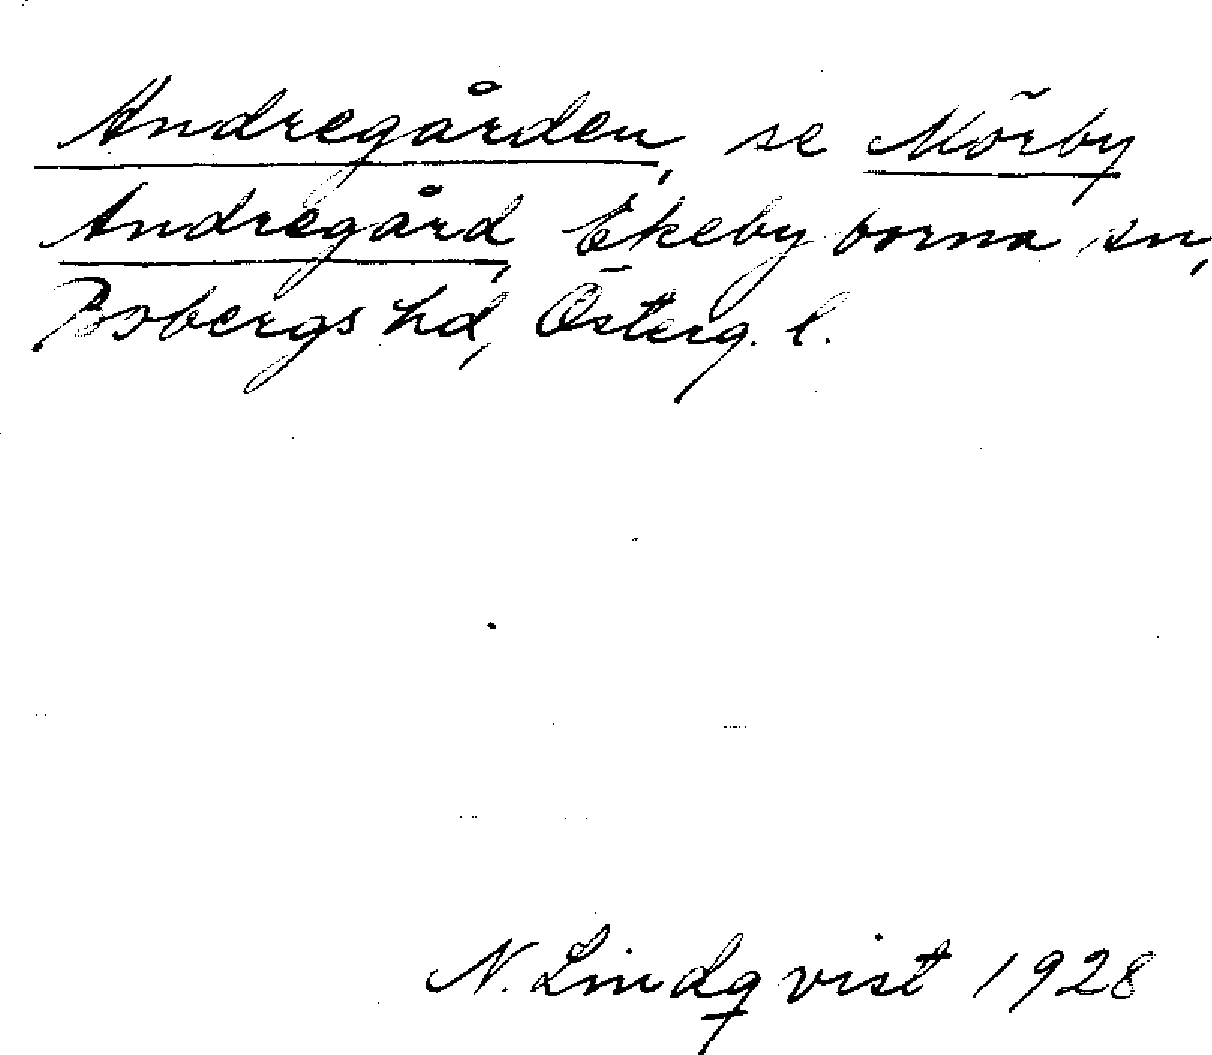 Andregården, se Mörby
Andregård, Ekebyborna sn,
Bobergs hd, Österg. l.
N. Lindqvist 1928